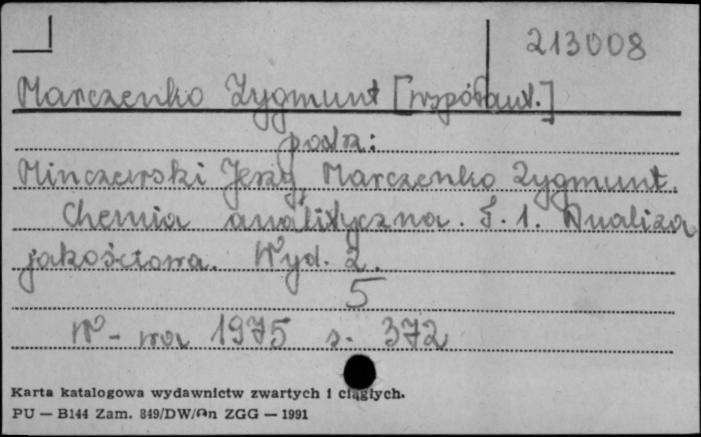 213008
Marczenko Zygmunt [współaut.]
patrz:
Minczewski Jerzy, Marczenko Zygmunt.
Chemia analityczna. T. 1. Analiza
jakościowa. Wyd. 2.
5
W-wa 1975 s. 372
Karta katalogowa wydawnictw zwartych i ciągłych.
PU — B144 Zam. 849/DW/On ZGG — 1991